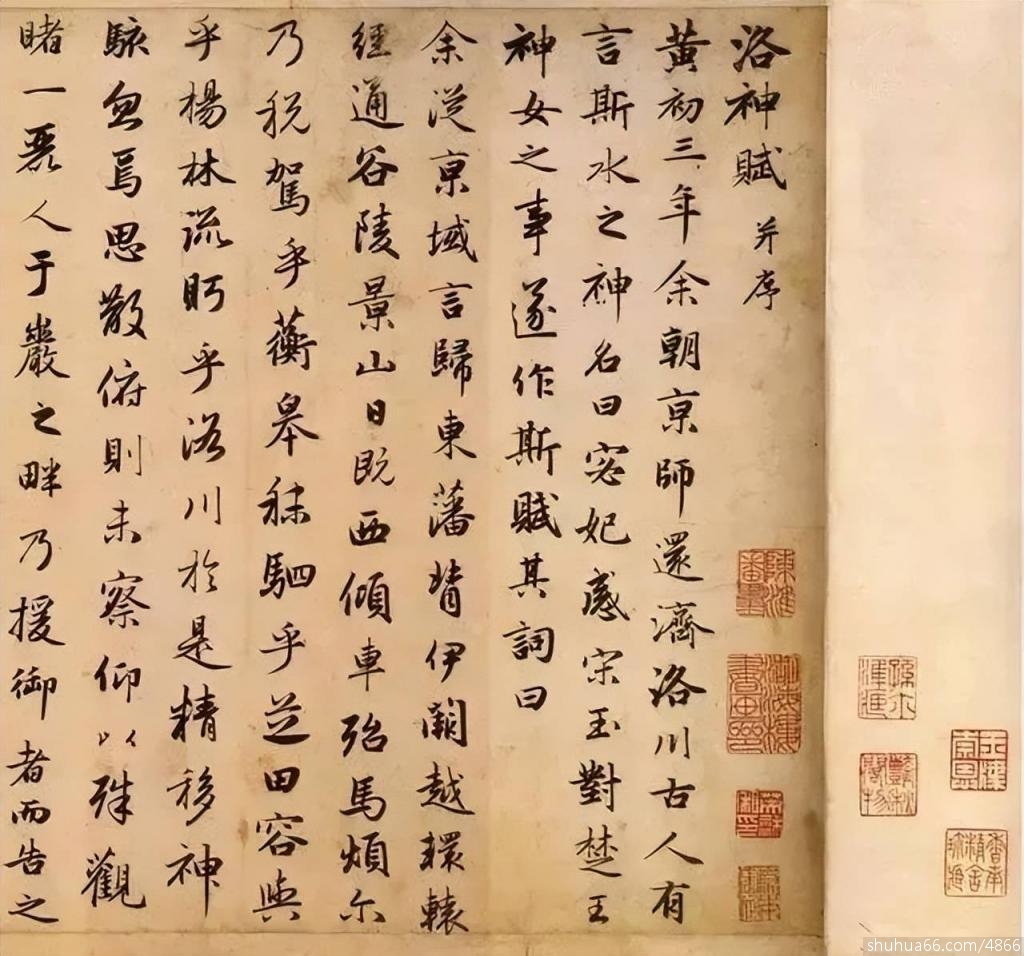 洛神賦 并序
黃初三年余朝京師還濟洛川古人有
言斯水之神名曰宓妃感宋玉對楚王
神女之事遂作斯賦其詞曰
余從京域言歸東藩背伊闕越轘轅
經通谷陵景山日既西傾車殆馬煩尓
乃稅駕乎蘅皋秣駟乎芝田容與
乎楊林流眄乎洛川於是精移神
駭忽焉思散俯則未察仰以殊觀
睹一麗人于巖之畔乃援御者而告之
shuhua66.com/4866